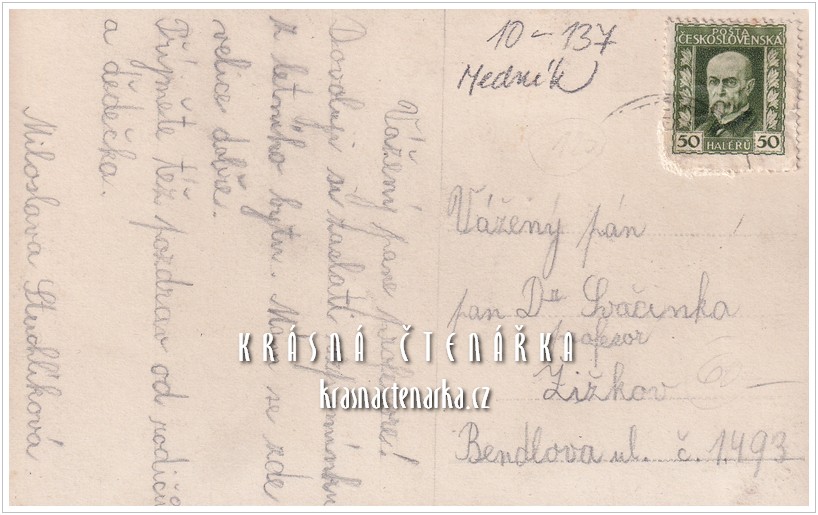 10 - 137
Medník
POŠTA
ČESKOSLOVENSKÁ
50 50
HALÉŘŮ
Vážený pane profesore!
Dovoluji si zaslati vzpomínku
z letního bytu. Mám se zde
velice dobře.
Přijměte též pozdrav od rodičů
a dědečka.
Miloslava Stuchlíková
Vážený pán
pan Dr Svačinka
profesor
Žižkov
Bendlova ul. č. 1493
KRÁSNÁ ČTENÁŘKA
krasnactenarka.cz